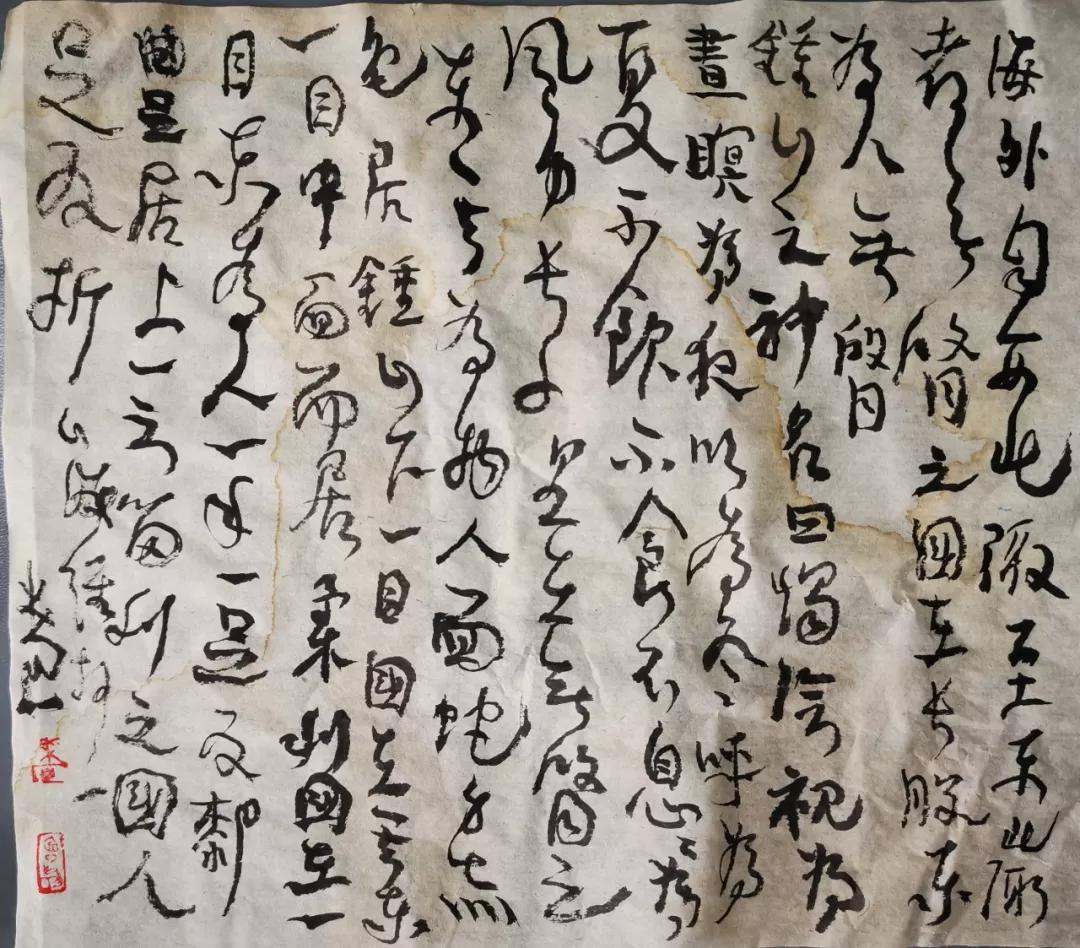 海外自西北陬至東北陬
者無䏿之國在長股東
為人無䏿
鍾山之神名曰燭陰視為
晝瞑為夜吹為冬呼為
夏不飲不食不息息為
風身長千里在無䏿之
東其為物人面蛇身赤
色居鍾山下一目國在其東
一目中面而居柔利國在一
目東為人一手一足反膝
足居上一云留利之國人
足反折山海經